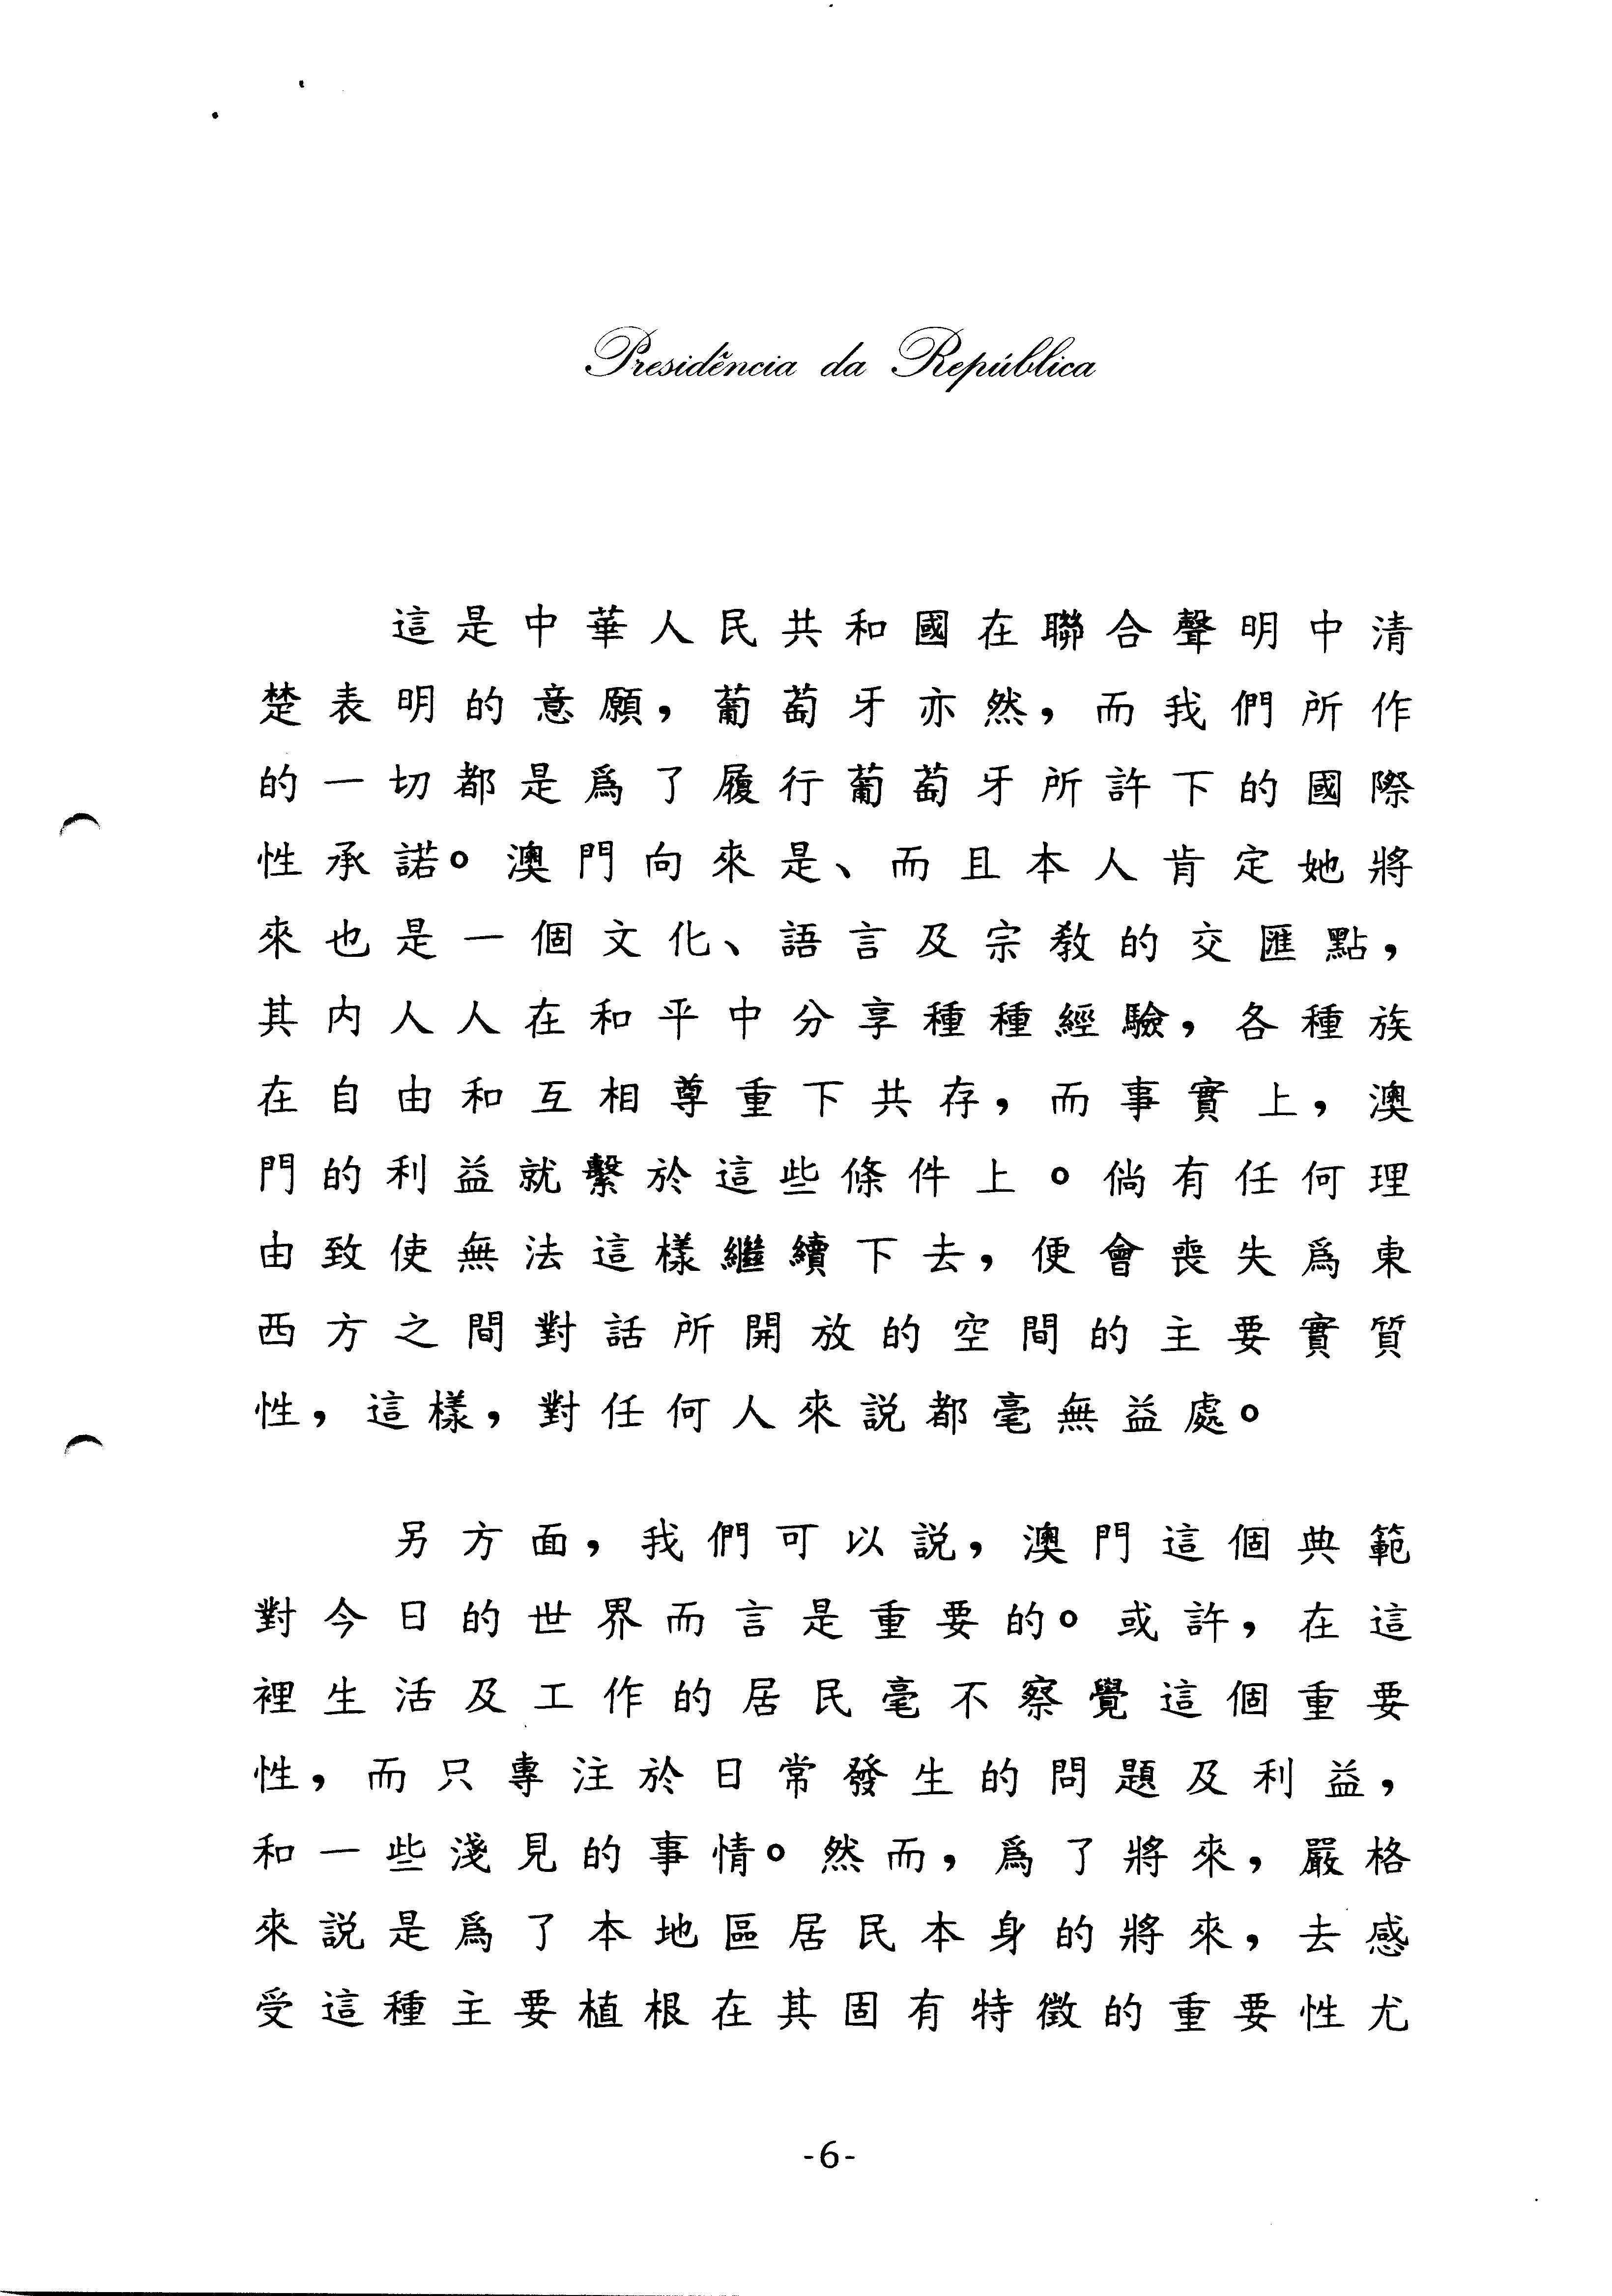 Presidência da República
這是中華人民共和國在聯合聲明中清
楚表明的意願，葡萄牙亦然，而我們所作
的一切都是爲了履行葡萄牙所許下的國際
性承諾。澳門向來是、而且本人肯定她將
來也是一個文化、語言及宗教的交匯點，
其內人人在和平中分享種種經驗，各種族
在自由和互相尊重下共存，而事實上，澳
門的利益就繫於這些條件上。倘有任何理
由致使無法這樣繼續下去，便會喪失爲東
西方之間對話所開放的空間的主要實質
性，這樣，對任何人來説都毫無益處。
另方面，我們可以説，澳門這個典範
對今日的世界而言是重要的。或許，在這
裡生活及工作的居民毫不察覺這個重要
性，而只專注於日常發生的問題及利益，
和一些淺見的事情。然而，爲了將來，嚴格
來説是爲了本地區居民本身的將來，去感
受這種主要植根在其固有特徵的重要性尤
-6-